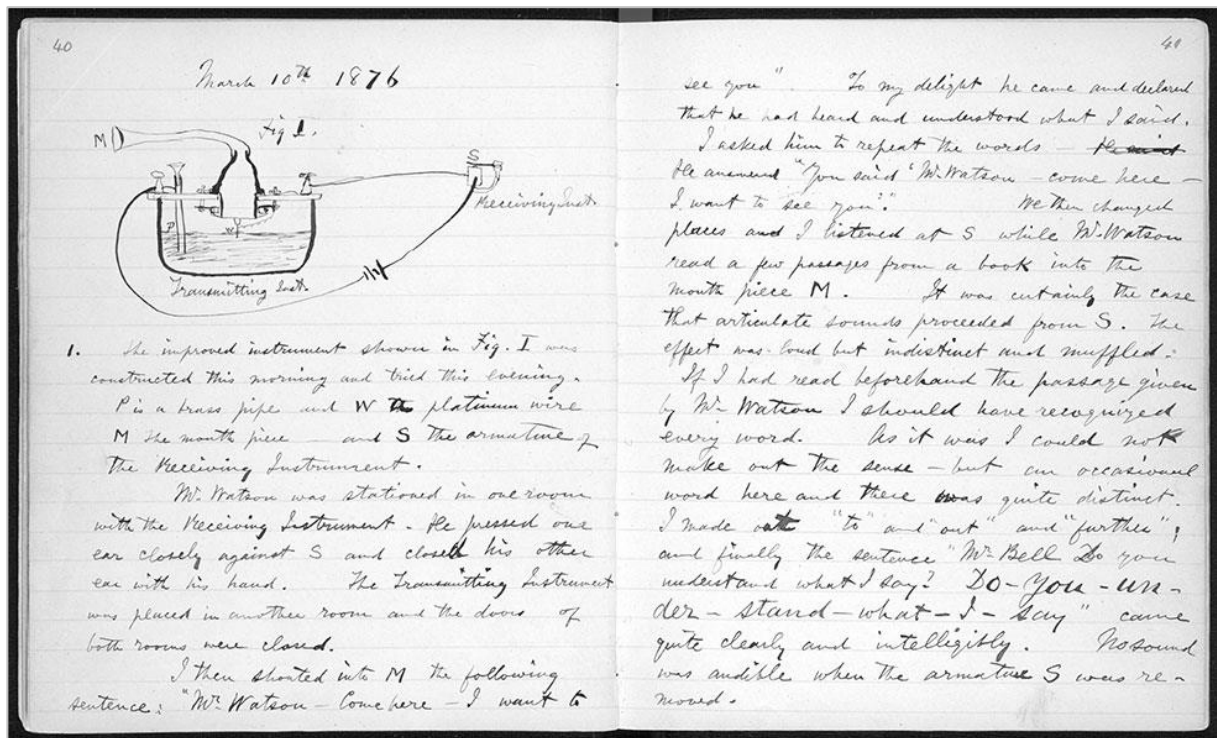 40
March 10th 1876
Fig 1.
M
S
Receiving Inst.
P
W
Transmitting Inst.
1. The improved instrument shown in Fig. I was
constructed this morning and tried this evening.
P is a brass pipe and W the platinum wire
M the mouth piece — and S the armature of
the Receiving Instrument.
Mr. Watson was stationed in one room
with the Receiving Instrument. He pressed one
ear closely against S and closed his other
ear with his hand. The Transmitting Instrument
was placed in another room and the doors of
both rooms were closed.
I then shouted into M the following
sentence: "Mr. Watson — Come here — I want to
41
see you". To my delight he came and declared
that he had heard and understood what I said.
I asked him to repeat the words —
He answered "You said 'Mr. Watson — come here —
I want to see you'." We then changed
places and I listened at S while Mr. Watson
read a few passages from a book into the
mouth piece M. It was certainly the case
that articulate sounds proceeded from S. The
effect was loud but indistinct and muffled.
If I had read beforehand the passage given
by Mr. Watson I should have recognized
every word. As it was I could not
make out the sense — but an occasional
word here and there was quite distinct.
I made out "to" and "out" and "further";
and finally the sentence "Mr. Bell Do you
understand what I say? Do–You–un–
der–stand–what–I–say" came
quite clearly and intelligibly. No sound
was audible when the armature S was re–
moved.